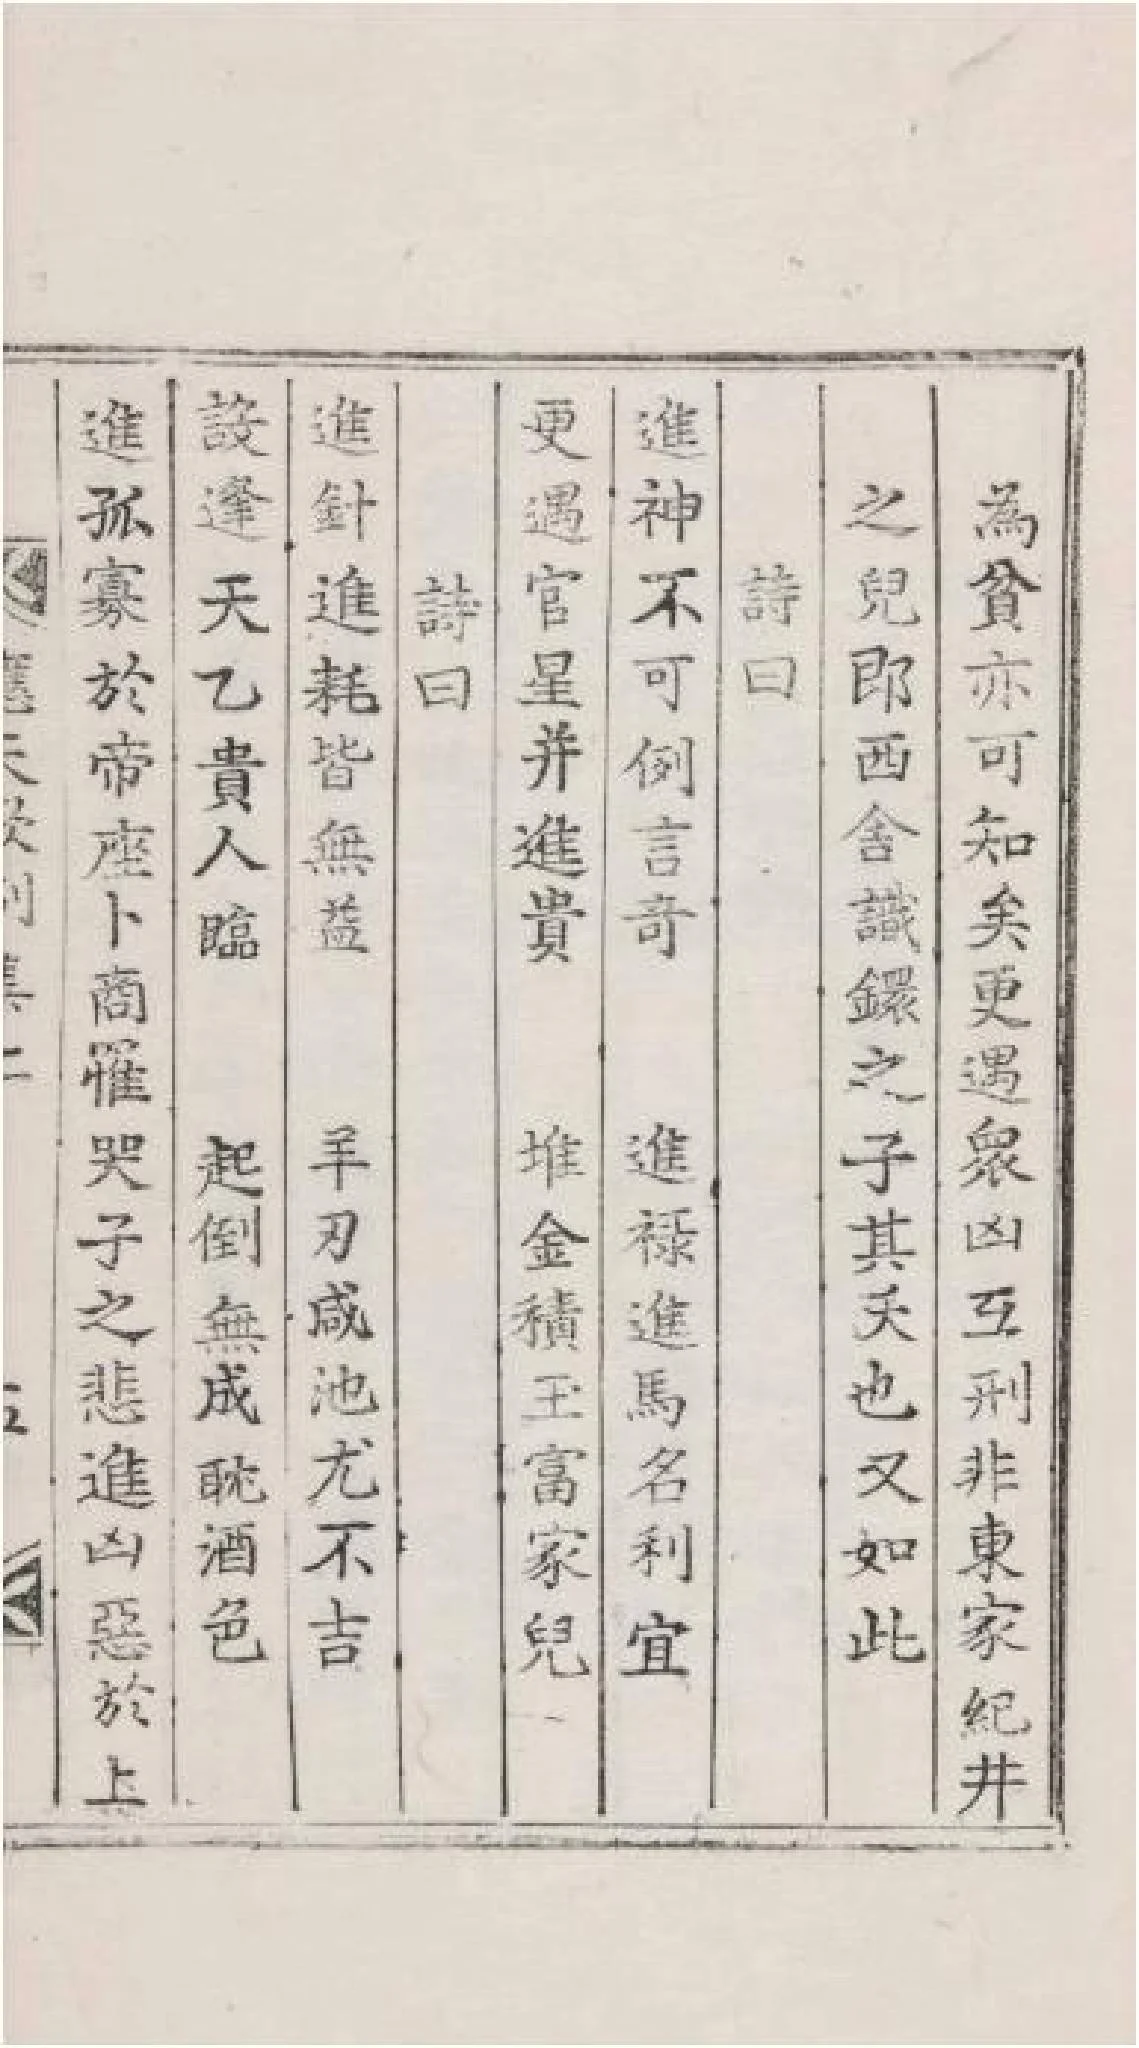 為貧亦可知矣更遇衆凶互刑非東家紀井
之兒即西舎識鐶之子其夭也又如此
詩曰
進神不可例言奇 進祿進馬名利宜
更遇官星并進貴 堆金積玉富家兒
詩曰
進針進耗皆無益 羊刃咸池尤不吉
設逢天乙貴人臨 起倒無成耽酒色
進孤寡於帝座卜商罹哭子之悲進凶惡於上